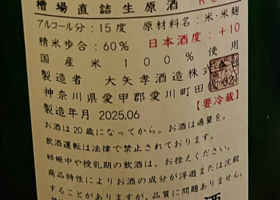 槽場直詰生原酒
アルコール分:15度 原材料名:米・米麹
精米歩合:60% 日本酒度:+10
国産米100%使用
製造者 大矢孝酒造株式
神奈川県愛甲郡愛川町田
製造年月 2025.06 【要冷蔵】
お酒は20歳になってから。お酒は適量を。
飲酒運転は法律で禁止されております。
妊娠中や授乳期の飲酒は、お控えください。
商品特性によりお酒の成分が浮遊または沈殿
することがありますが、品質に問題ありません
酒